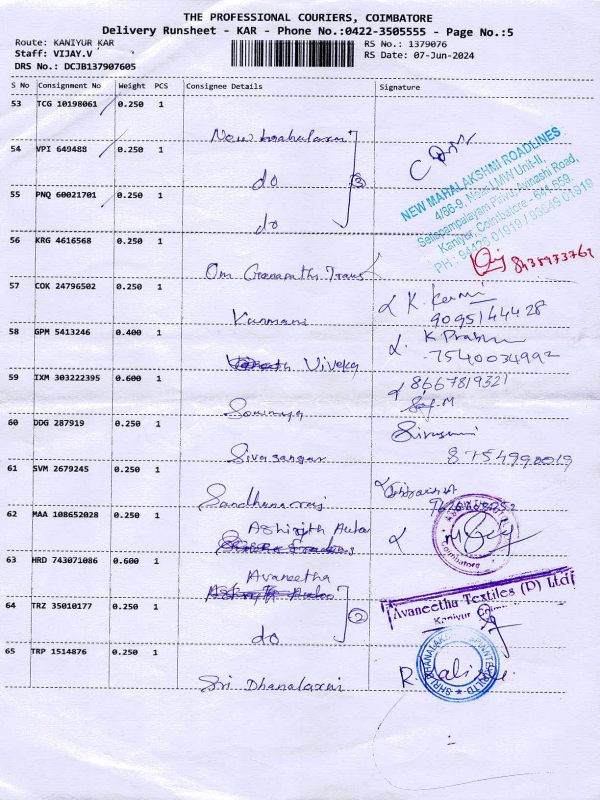 THE PROFESSIONAL COURIERS, COIMBATORE
Delivery Runsheet - KAR - Phone No.:0422-3505555 - Page No.:5
Route: KANIYUR KAR
RS No.: 1379076
Staff: VIJAY.V
RS Date: 07-Jun-2024
DRS No.: DCJB137907605
S No Consignment No Weight PCS Consignee Details Signature
53 TCG 10198061 0.250 1
New
54 VPI 649488 0.250 1
do
3
NEW MAHALAKSHMI ROADLINES
4/66-9, Near LMW Unit-II,
Kaniyur, Coimbatore - 641 559.
55 PNQ 60021701 0.250 1
do
56 KRG 4616568 0.250 1
Om Ganapathi Trans
57 COK 24796502 0.250 1
Kanmani
K.
9095144428
58 GPM 5413246 0.400 1
Vivek
K. Prabhu
7540034992
59 IXM 303222395 0.600 1
Sowmya
8667819321
60 DDG 287919 0.250 1
Sivasangar
8754990019
61 SVM 2679245 0.250 1
Sandhanaraj
62 MAA 108652028 0.250 1
Abhijith Auto
Coimbatore
63 HRD 743071086 0.600 1
Avaneetha
Avaneetha Textiles (P) Ltd
Kaniyur,
64 TRZ 35010177 0.250 1
do
2
65 TRP 1514876 0.250 1
Sri Dhanalaxmi
R.